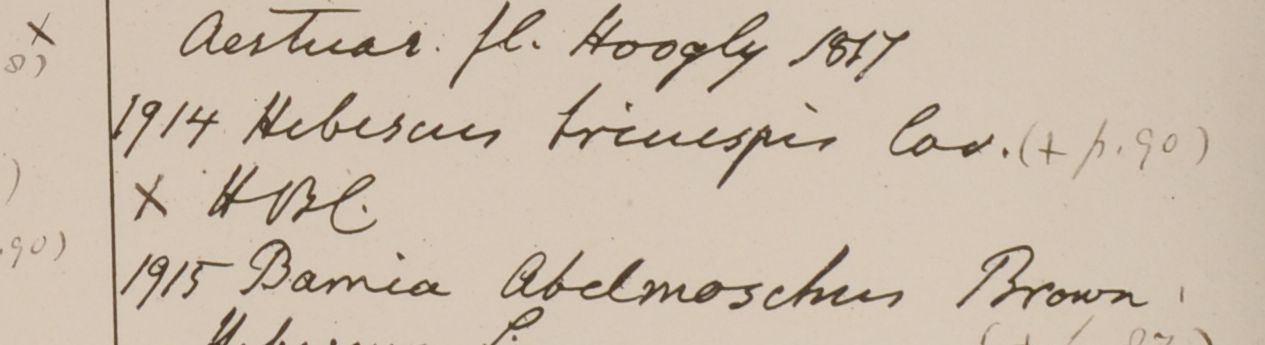 x
8)
Aestuar. fl. Hoogly 1817
1914 Hibiscus trinespis Cav. (+ p.90)
)
x HBC.
.90)
1915 Bamia Abelmoschus Brown
Hibiscus L.